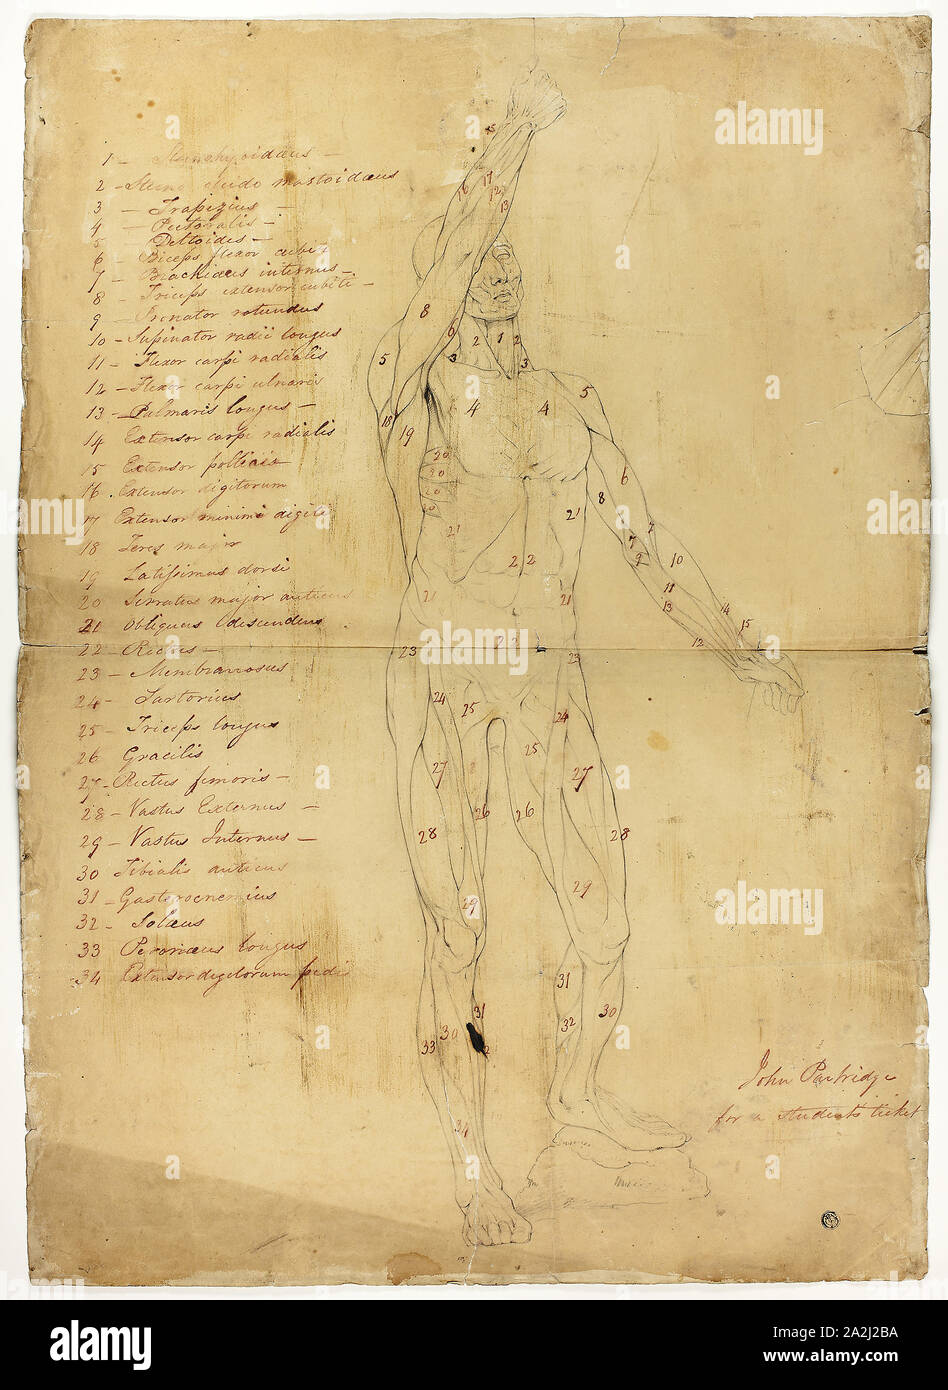 1 - Sternohyoidæus -
2 - Sterno cleido mastoidæus
3 - Trapezius -
4 - Pectoralis -
5 - Deltoides -
6 - Biceps flexor cubiti
7 - Brachiæus internus -
8 - Triceps extensor cubiti -
9 - Pronator rotundus
10 - Supinator radii longus
11 - Flexor carpi radialis
12 - Flexor carpi ulnaris
13 - Palmaris longus -
14 Extensor carpi radialis
15 Extensor pollicis
16 . Extensor digitorum
17 Extensor minimi digiti
18 Teres major
19 Latissimus dorsi
20 Serratus major anticus
21 Obliquus descendens
22 - Rectus -
23 - Membranosus
24 - Sartorius
25 - Triceps longus
26 Gracilis
27 - Rectus femoris -
28 - Vastus Externus -
29 - Vastus Internus -
30 Tibialis anticus
31 - Gasterocnemius
32 - Solæus
33 Peronæus longus
34 Extensor digitorum pedis
John Partridge
for a students ticket
alamy
Image ID: 2A2J2BA
www.alamy.com